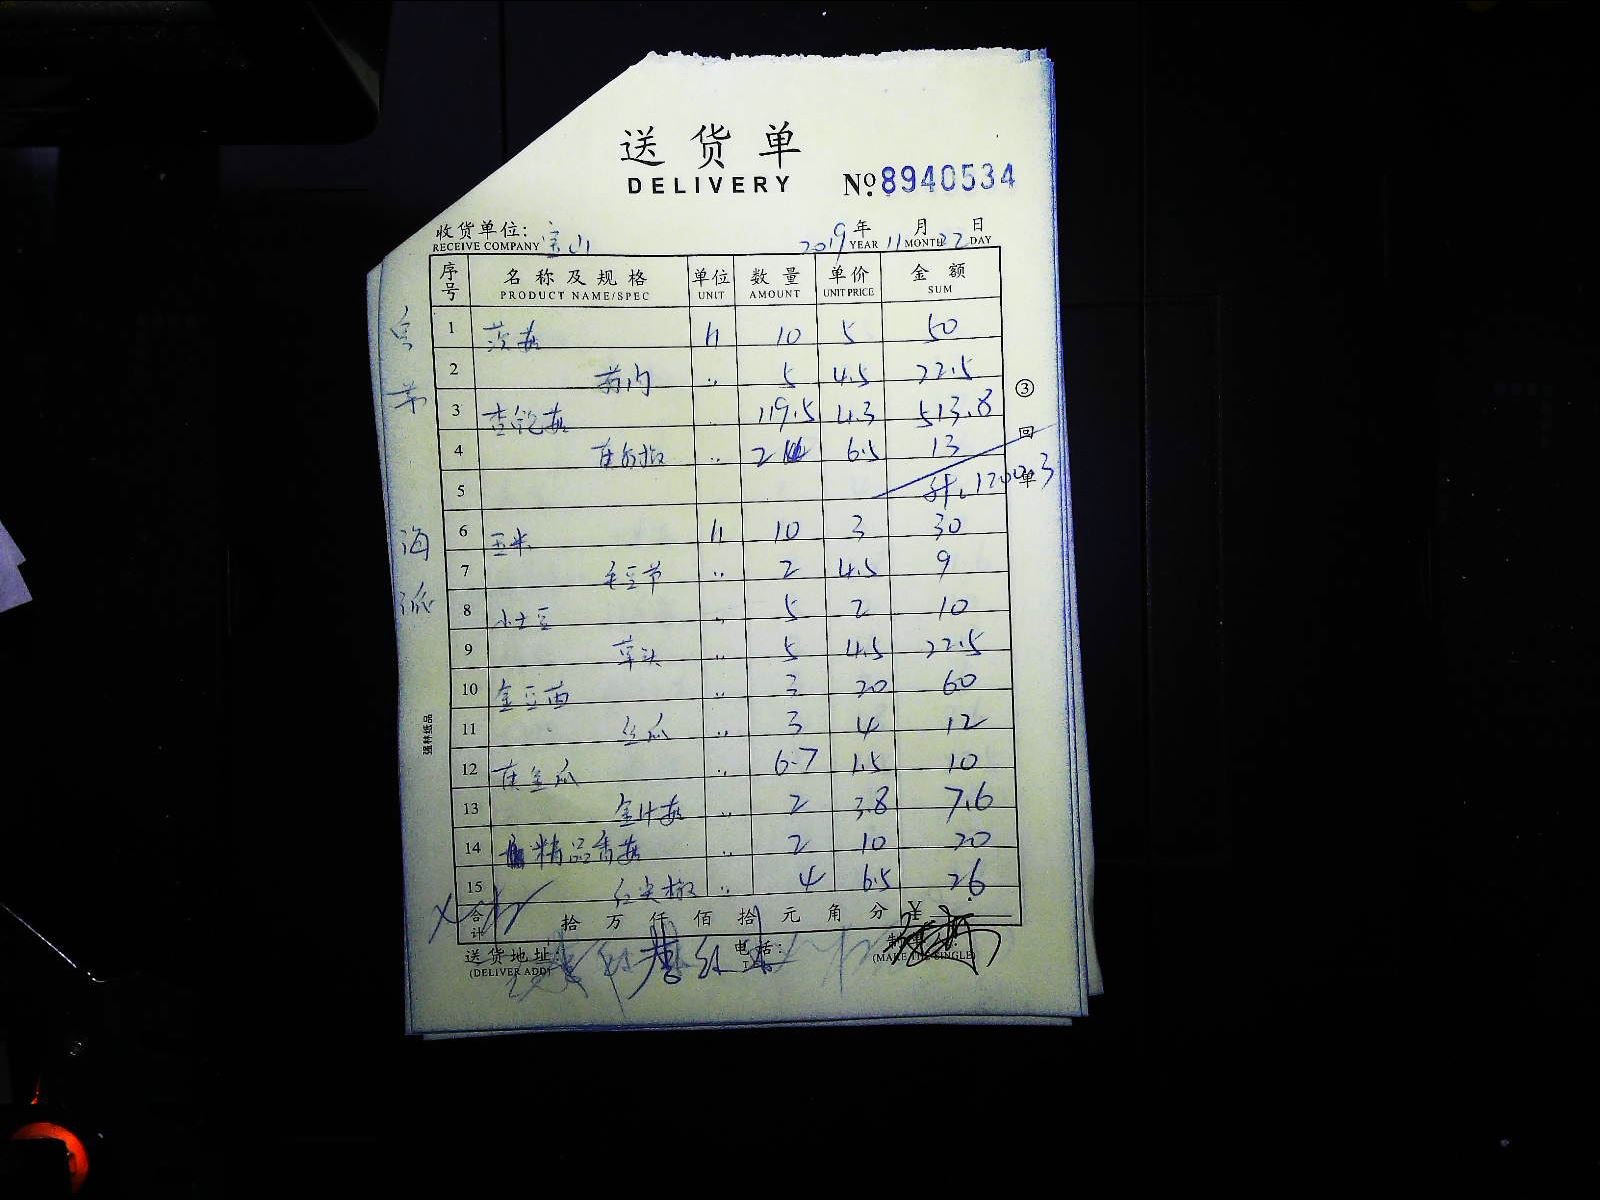 送货单
DELIVERY
№ 8940534
收货单位: 宝山 2019年 11月 22日
RECEIVE COMPANY YEAR MONTH DAY
序号 名称及规格 单位 数量 单价 金额
PRODUCT NAME/SPEC UNIT AMOUNT UNIT PRICE SUM
1 茨菇 斤 10 5 50
2 5 4.5 22.5
3 杏鲍菇 119.5 4.3 513.8
4 2 6.5 13
5
6 玉米 斤 10 3 30
7 毛豆节 〃 2 4.5 9
8 小土豆 〃 5 2 10
9 草头 〃 5 4.5 22.5
10 金豆苗 〃 3 20 60
11 丝瓜 〃 3 4 12
12 6.7 1.5 10
13 金针菇 〃 2 3.8 7.6
14 精品香菇 〃 2 10 20
15 红尖椒 〃 4 6.5 26
合计 拾 万 仟 佰 拾 元 角 分 ¥
送货地址: 电话:
(DELIVER ADD)
(MAKE THE SINGLE)
③回单
强林纸品
海派